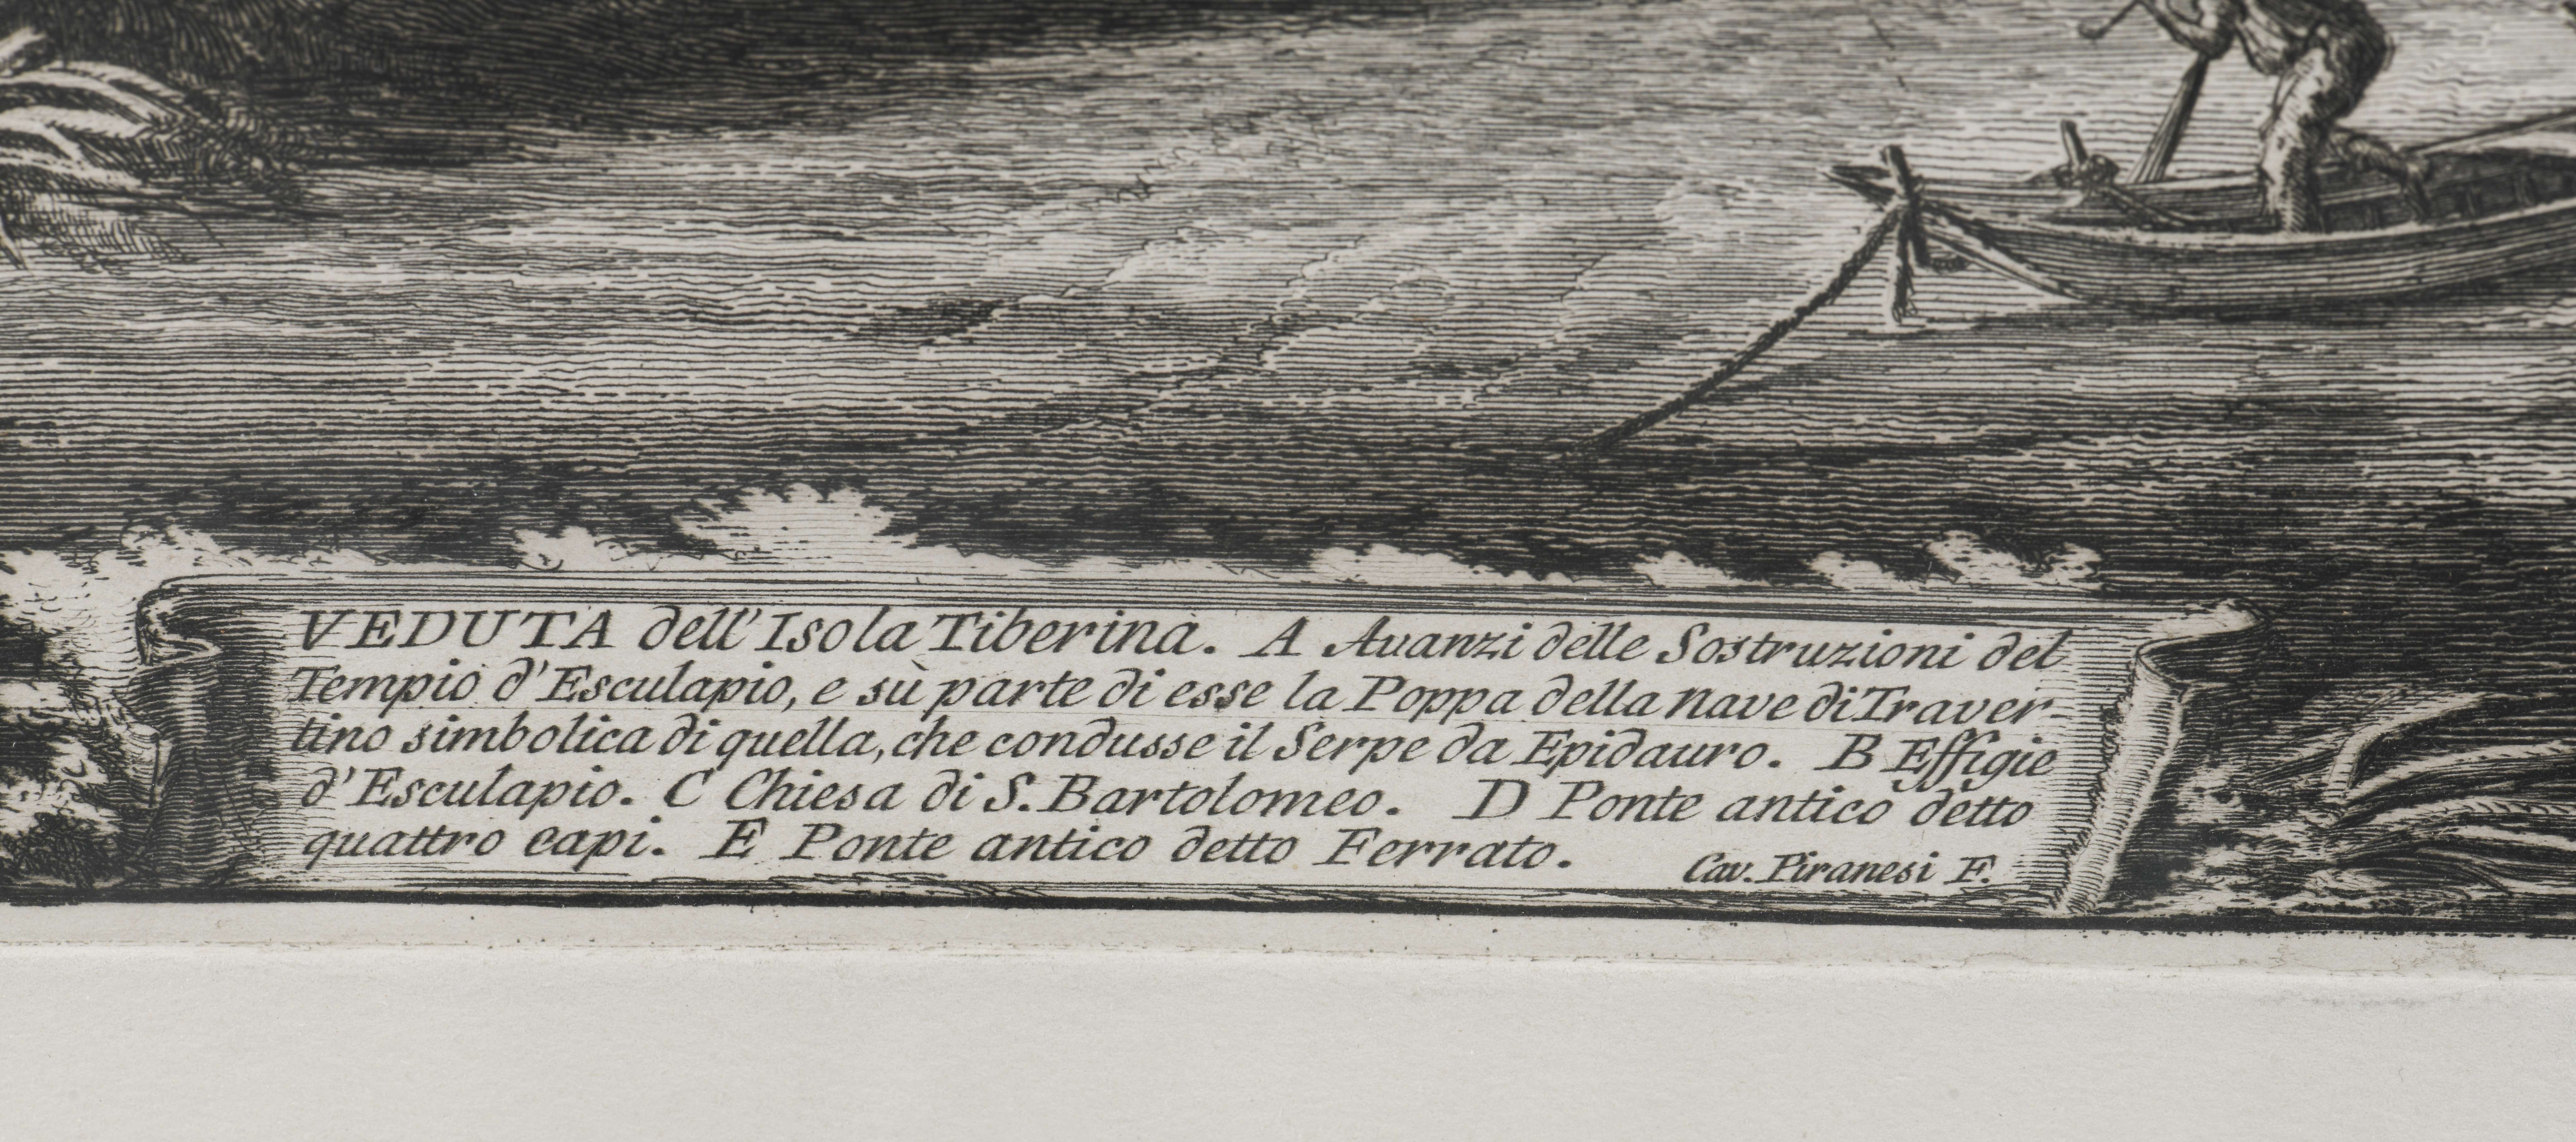 VEDUTA dell'Isola Tiberina. A Auanzi delle Sostruzioni del
Tempio d'Esculapio, e sù parte di esse la Poppa della Nave di Traver-
tino simbolica di quella, che condusse il Serpe da Epidauro. B Effigie
d'Esculapio. C Chiesa di S. Bartolomeo. D Ponte antico detto
quattro capi. E Ponte antico detto Ferrato.
Cav. Piranesi F.